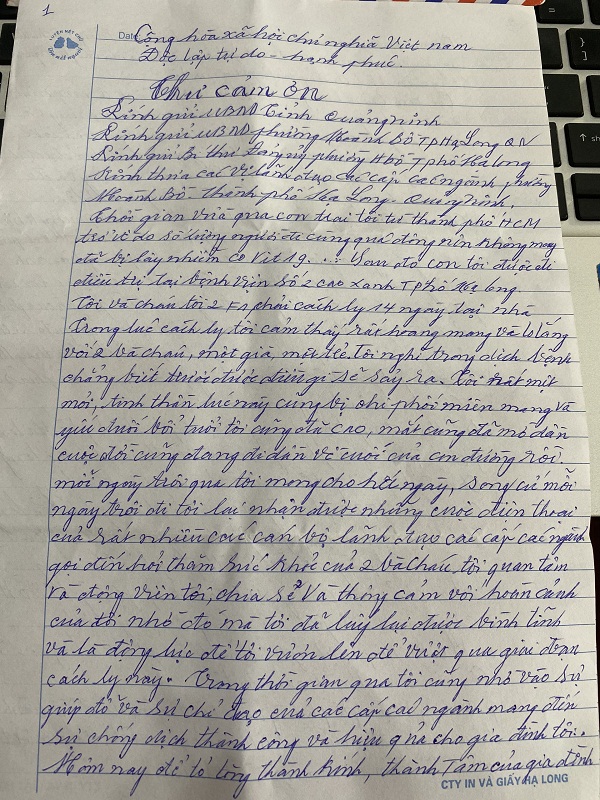 1
LUYỆN NÉT CHỮ
RÈN NẾT NGƯỜI
Date
Cộng hòa xã hội chủ nghĩa Việt nam
Độc lập tự do - hạnh phúc.
Thư cảm ơn
Kính gửi UBND Tỉnh Quảng ninh
Kính gửi UBND phường Hoành Bồ TP Hạ Long QN
Kính gửi Bí thư Đảng ủy phường H bồ T phố Hạ long
Kính thưa các vị lãnh đạo các cấp các ngành, phường
Hoành Bồ - thành phố Hạ Long - Quảng Ninh.
Thời gian vừa qua con trai tôi từ thành phố HCM
trở về do số lượng người đi cùng quá đông nên không may
đã bị lây nhiễm co vit 19. ... Sau đó con tôi được đi
điều trị tại bệnh viện số 2 cao xanh T phố Hạ long.
Tôi và cháu tôi 2 F1, phải cách ly 14 ngày tại nhà
Trong lúc cách ly tôi cảm thấy rất hoang mang và lo lắng
với 2 bà cháu, một già, một trẻ. Tôi nghĩ trong dịch bệnh
chẳng biết trước được điều gì sẽ sảy ra. Tôi rất mệt
mỏi, tinh thần lúc này cũng bị chi phối miên mang và
yếu đuối bởi tuổi tôi cũng đã cao, mắt cũng đã mờ dần
cuộc đời cũng đang đi dần về cuối của con đường rồi
mỗi ngày trôi qua tôi mong cho hết ngày, song cứ mỗi
ngày trôi đi tôi lại nhận được những cuộc điện thoại
của rất nhiều các cán bộ lãnh đạo các cấp các ngành
gọi đến hỏi thăm sức khỏe của 2 bà cháu tôi, quan tâm
và động viên tôi, chia sẻ và thông cảm với hoàn cảnh
của tôi nhờ đó mà tôi đã lấy lại được bình tĩnh
và là động lực để tôi vươn lên để vượt qua giai đoạn
cách ly này. Trong thời gian qua tôi cũng nhờ vào sự
giúp đỡ và sự chỉ đạo của các cấp các ngành mang đến
sự chống dịch thành công và hiệu quả cho gia đình tôi.
Hôm nay để tỏ lòng thành kính, thành tâm của gia đình
CTY IN VÀ GIẤY HẠ LONG